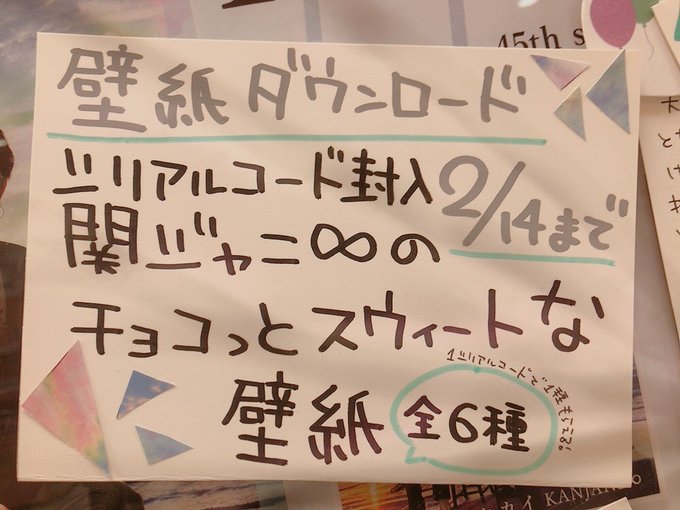 45th s
壁紙ダウンロード
シリアルコード封入
2/14まで
関ジャニ∞の
チョコっとスウィートな
1シリアルコードで1種もらえる!
壁紙
全6種
カイ KANJAN